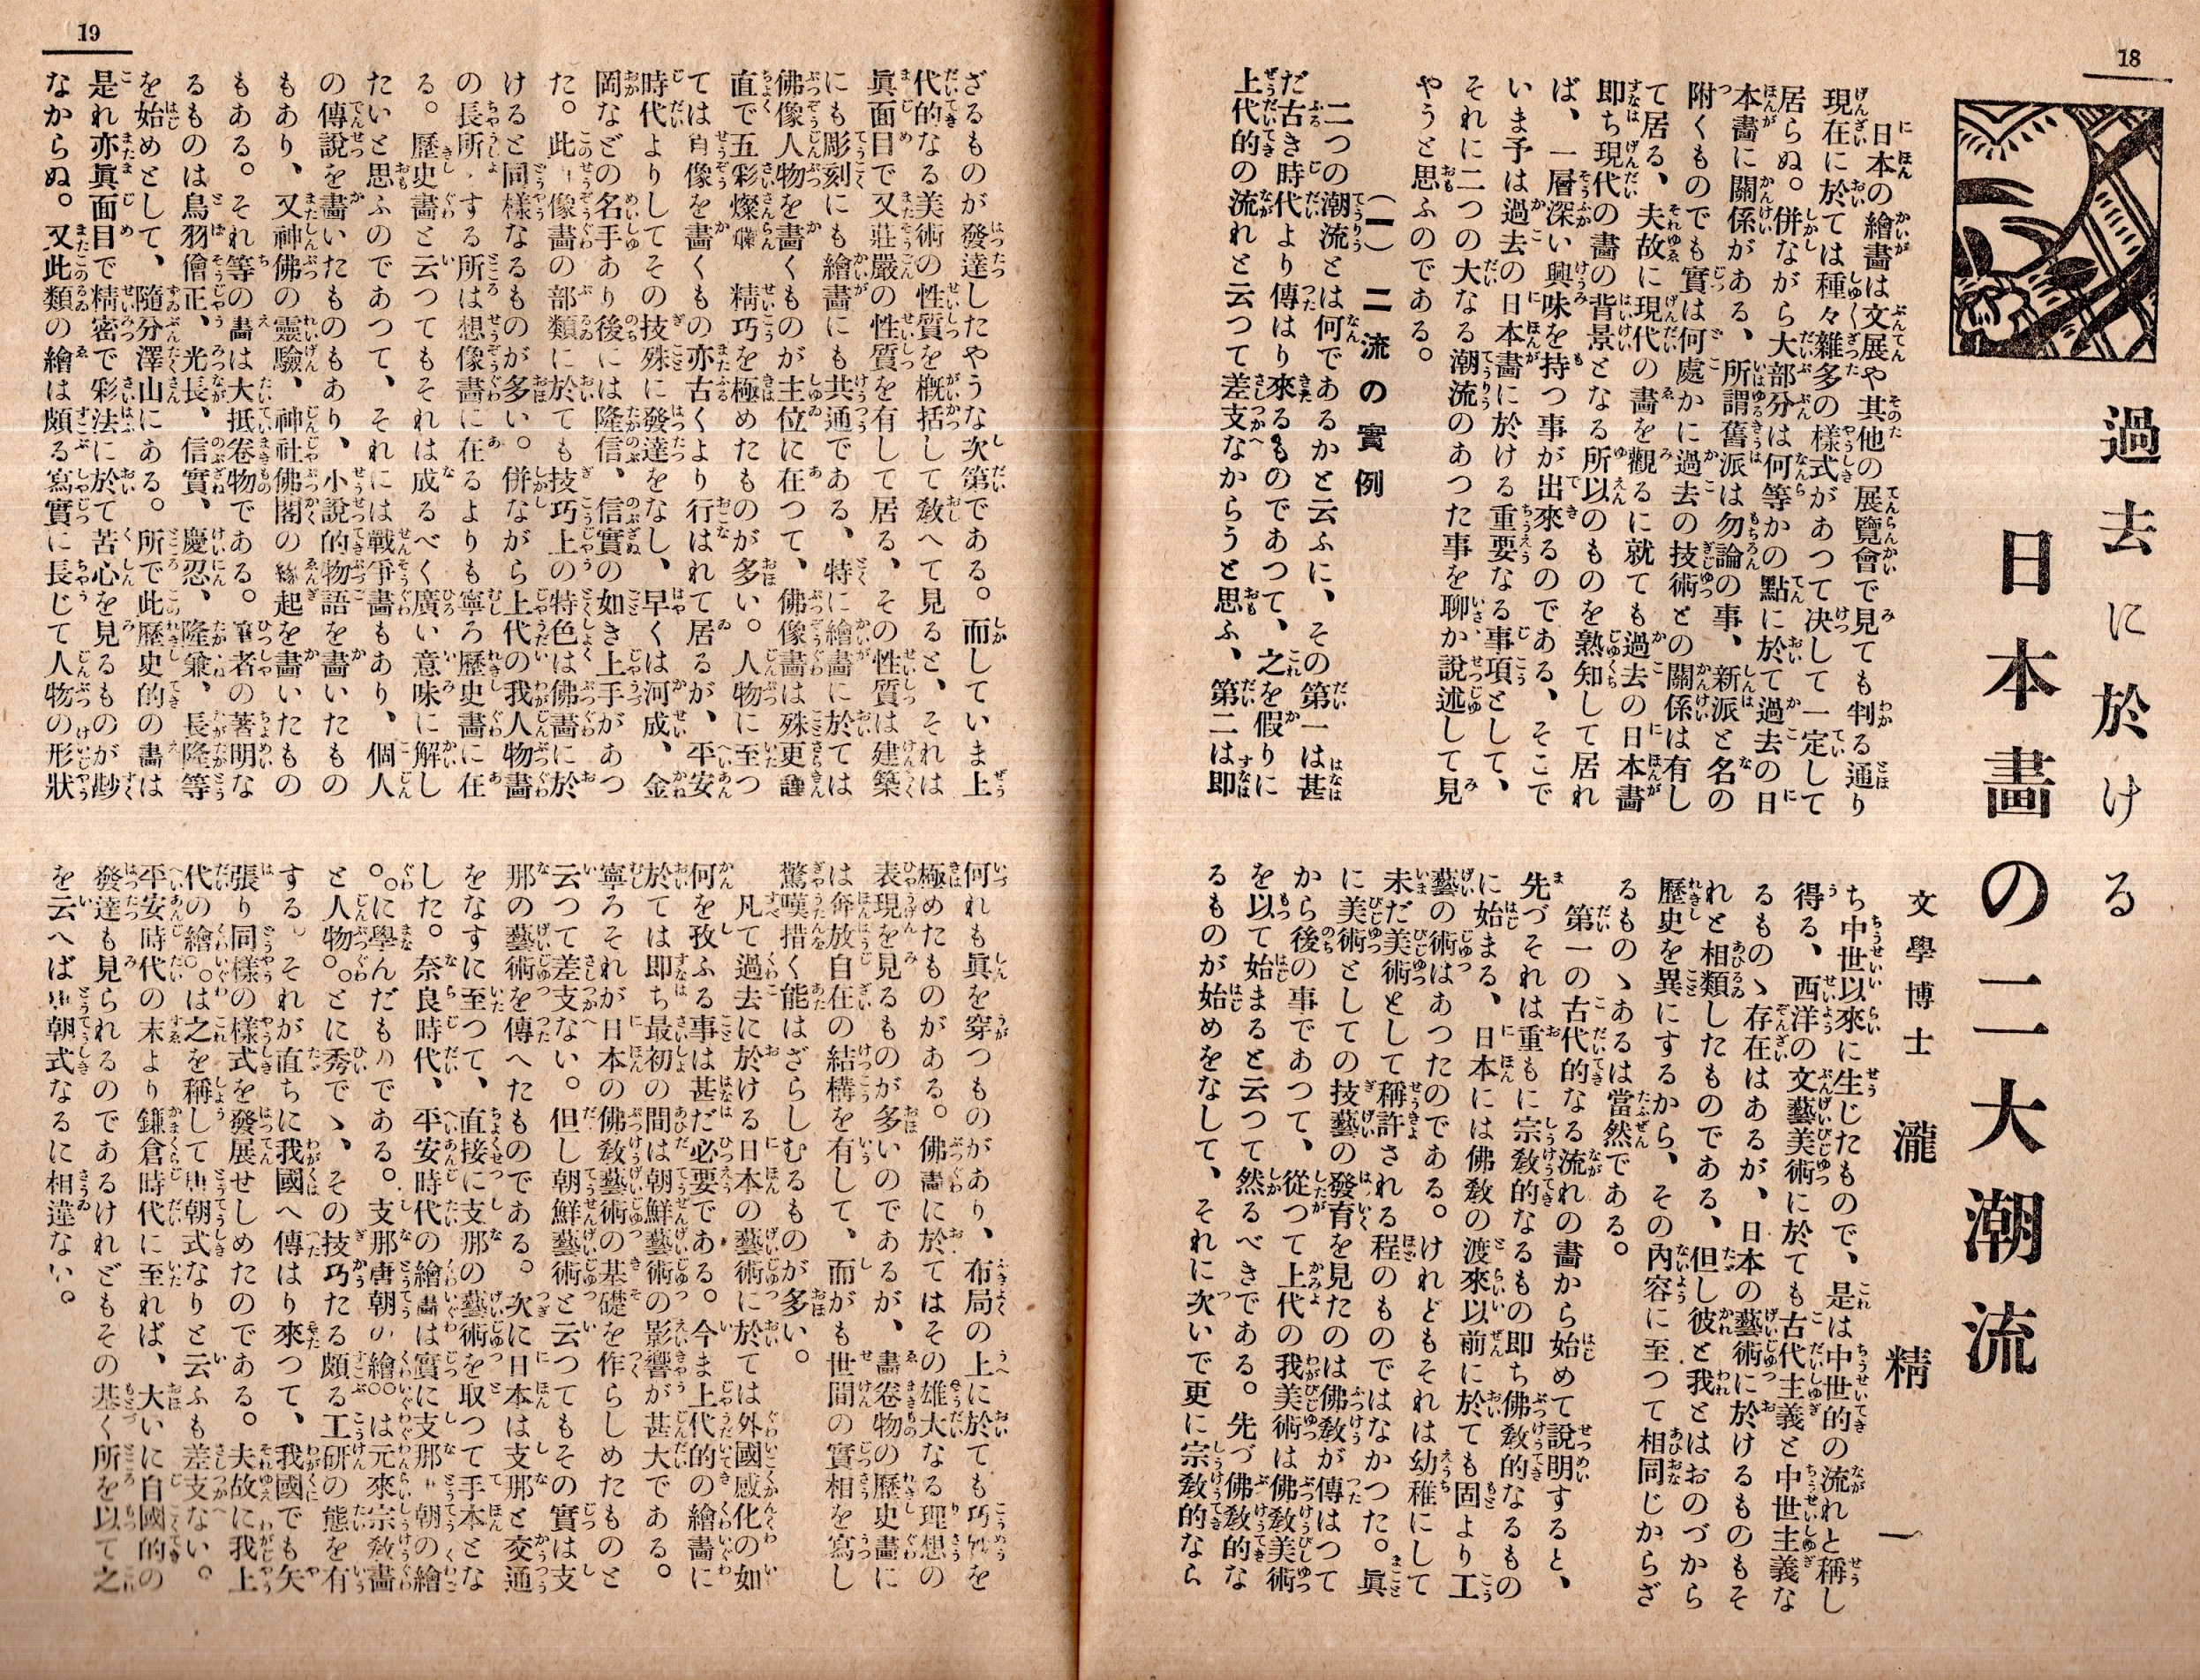 18
過去に於ける
日本畫の二大潮流
文學博士 瀧 精一
日本の繪畫は文展や其他の展覽會で見ても判る通り
現在に於ては種々雜多の樣式があつて決して一定して
居らぬ。併ながら大部分は何等かの點に於て過去の日
本畫に關係がある、所謂舊派は勿論の事、新派と名の
附くものでも實は何處かに過去の技術との關係は有し
て居る、夫故に現代の畫を觀るに就ても過去の日本畫
即ち現代の畫の背景となる所以のものを熟知して居れ
ば、一層深い興味を持つ事が出來るのである、そこで
いま予は過去の日本畫に於ける重要なる事項として、
それに二つの大なる潮流のあつた事を聊か說述して見
やうと思ふのである。
(一) 二流の實例
二つの潮流とは何であるかと云ふに、その第一は甚
だ古き時代より傳はり來るものであつて、之を假りに
上代的の流れと云つて差支なからうと思ふ、第二は即
ち中世以來に生じたもので、是は中世的の流れと稱し
得る、西洋の文藝美術に於ても古代主義と中世主義な
るものゝ存在はあるが、日本の藝術に於けるものもそ
れと相類したものである、但し彼と我とはおのづから
歷史を異にするから、その內容に至つて相同じからざ
るものゝあるは當然である。
第一の古代的なる流れの畫から始めて說明すると、
先づそれは重もに宗敎的なるもの即ち佛敎的なるもの
に始まる、日本には佛敎の渡來以前に於ても固より工
藝の術はあつたのである。けれどもそれは幼稚にして
未だ美術として稱許される程のものではなかつた。眞
に美術としての技藝の發育を見たのは佛敎が傳はつて
から後の事であつて、從つて上代の我美術は佛敎美術
を以て始まると云つて然るべきである。先づ佛敎的な
るものが始めをなして、それに次いで更に宗敎的なら
19
ざるものが發達したやうな次第である。而していま上
代的なる美術の性質を槪括して敎へて見ると、それは
眞面目で又莊嚴の性質を有して居る、その性質は建築
にも彫刻にも繪畫にも共通である、特に繪畫に於ては
佛像人物を畫くものが主位に在つて、佛像畫は殊更謹
直で五彩燦爛 精巧を極めたものが多い。人物に至つ
ては肖像を畫くもの亦古くより行はれて居るが、平安
時代よりしてその技殊に發達をなし、早くは河成、金
岡などの名手あり後には隆信、信實の如き上手があつ
た。此肖像畫の部類に於ても技巧上の特色は佛畫に於
けると同樣なるものが多い。併ながら上代の我人物畫
の長所とする所は想像畫に在るよりも寧ろ歷史畫に在
る。歷史畫と云つてもそれは成るべく廣い意味に解し
たいと思ふのであつて、それには戰爭畫もあり、個人
の傳說を畫いたものもあり、小說的物語を畫いたもの
もあり、又神佛の靈驗、神社佛閣の緣起を畫いたもの
もある。それ等の畫は大抵卷物である。筆者の著明な
るものは鳥羽僧正、光長、信實、慶忍、隆兼、長隆等
を始めとして、隨分澤山にある。所で此歷史的の畫は
是れ亦眞面目で精密で彩法に於て苦心を見るものが尠
なからぬ。又此類の繪は頗る寫實に長じて人物の形狀
何れも眞を穿つものがあり、布局の上に於ても巧妙を
極めたものがある。佛畫に於てはその雄大なる理想の
表現を見るものが多いのであるが、畫卷物の歷史畫に
は奔放自在の結構を有して、而がも世間の實相を寫し
驚嘆措く能はざらしむるものが多い。
凡て過去に於ける日本の藝術に於ては外國感化の如
何を攷ふる事は甚だ必要である。今ま上代的の繪畫に
於ては即ち最初の間は朝鮮藝術の影響が甚大である。
寧ろそれが日本の佛敎藝術の基礎を作らしめたものと
云つて差支ない。但し朝鮮藝術と云つてもその實は支
那の藝術を傳へたものである。次に日本は支那と交通
をなすに至つて、直接に支那の藝術を取つて手本とな
した。奈良時代、平安時代の繪畫は實に支那唐朝の繪
に學んだものである。支那唐朝の繪は元來宗敎畫
と人物とに秀でゝ、その技巧たる頗る工研の態を有
する。それが直ちに我國へ傳はり來つて、我國でも矢
張り同樣の樣式を發展せしめたのである。夫故に我上
代の繪は之を稱して唐朝式なりと云ふも差支ない。
平安時代の末より鎌倉時代に至れば、大いに自國的の
發達も見られるのであるけれどもその基く所を以て之
を云へば唐朝式なるに相違ない。